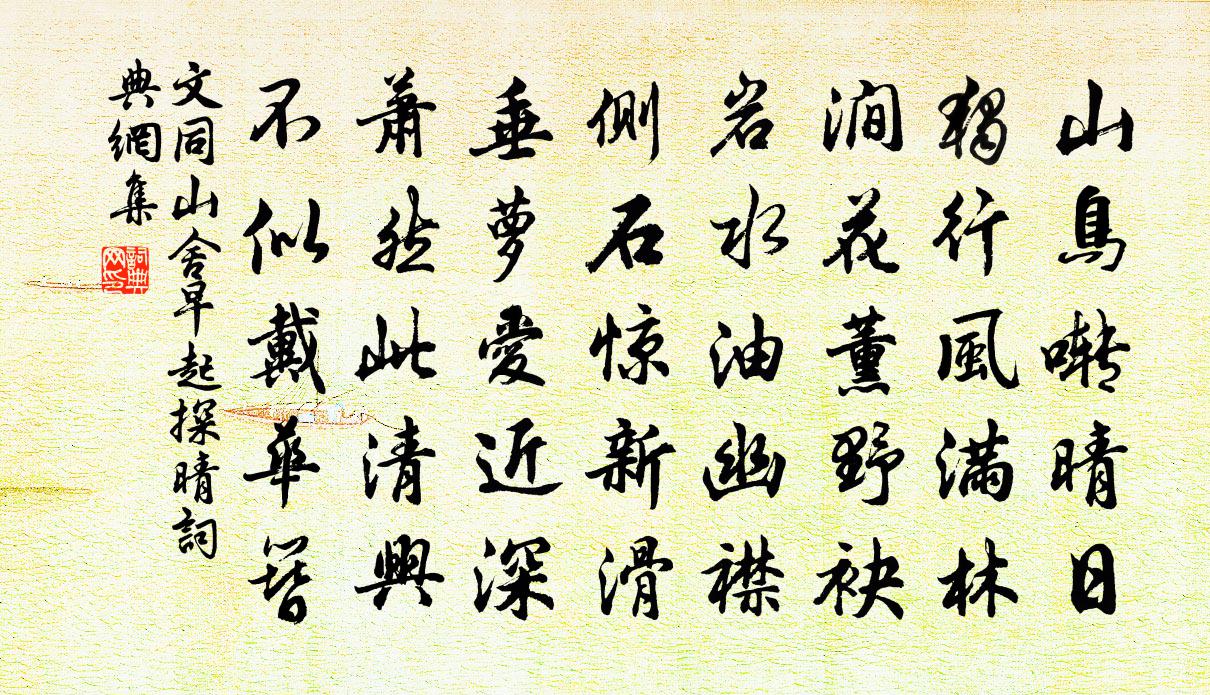 山鳥囀晴日
獨行風滿林
澗花薰野袂
岩水油幽襟
側石惊新滑
垂萝愛近深
蕭然此清興
不似戴華簪
文同山舍早起探晴詞
典網集
詞典
网印